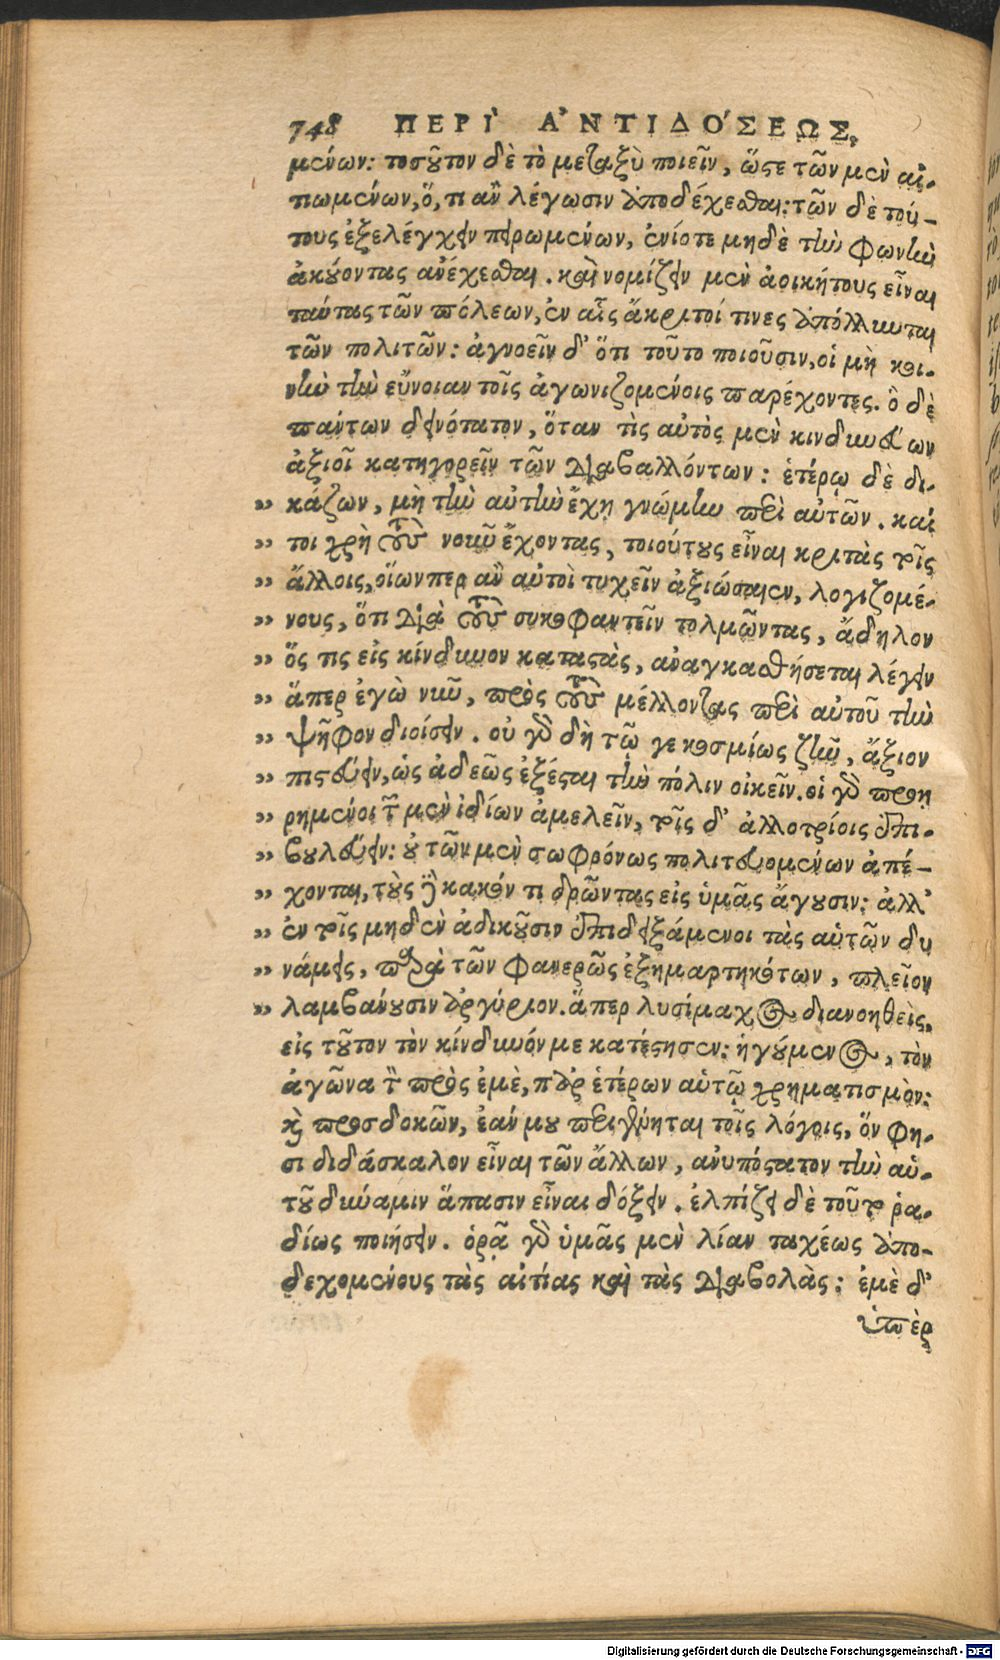 748 ΠΕΡΙ` ἈΝΤΙΔΟ΄ΣΕΩΣ.
μένων: τοσοῦτον δὲ τὸ μεταξὺ ποιεῖν, ὥστε τῶν μὲν αἰ-
τιωμένων, ὅ,τι ἂν λέγωσιν ἀποδέχεσθαι: τῶν δὲ τού-
τους ἐξελέγχειν πειρωμένων, ἐνίοτε μηδὲ τὴν φωνὴν
ἀκούοντας ἀνέχεσθαι. καὶ νομίζειν μὲν ἀοικήτους εἶναι
ταύτας τῶν πόλεων, ἐν αἷς ἄκριτοί τινες ἀπόλλυνται
τῶν πολιτῶν: ἀγνοεῖν δ' ὅτι τοῦτο ποιοῦσιν, οἱ μὴ κοι-
νὴν τὴν εὔνοιαν τοῖς ἀγωνιζομένοις παρέχοντες. ὃ δὲ
πάντων δεινότατον, ὅταν τὶς αὐτὸς μὲν κινδυνεύων
ἀξιοῖ κατηγορεῖν τῶν διαβαλλόντων: ἑτέρῳ δὲ δι-
„ κάζων, μὴ τὴν αὐτὴν ἔχῃ γνώμην περὶ αὐτῶν. καί
„ τοι χρὴ τοὺς νοῦν ἔχοντας, τοιούτους εἶναι κριτὰς τοῖς
„ ἄλλοις, οἵωνπερ ἂν αὐτοὶ τυχεῖν ἀξιώσαιεν, λογιζομέ-
„ νους, ὅτι διὰ τοὺς συκοφαντεῖν τολμῶντας, ἄδηλον
„ ὅς τις εἰς κίνδυνον καταστὰς, ἀναγκασθήσεται λέγειν
„ ἅπερ ἐγὼ νῦν, πρὸς τοὺς μέλλοντας περὶ αὐτοῦ τὴν
„ ψῆφον διοίσειν. οὐ γὰρ δὴ τῷ γε κοσμίως ζῆν, ἄξιον
„ πιστεύειν, ὡς ἀδεῶς ἐξέσται τὴν πόλιν οἰκεῖν. οἱ γὰρ προῃ
„ ρημένοι τῶν μὲν ἰδίων ἀμελεῖν, τοῖς δ' ἀλλοτρίοις ἐπι-
„ βουλεύειν: οὐ τῶν μὲν σωφρόνως πολιτευομένων ἀπέ-
„ χονται, τοὺς δὲ κακόν τι δρῶντας εἰς ὑμᾶς ἄγουσιν: ἀλλ'
„ ἐν τοῖς μηδὲν ἀδικοῦσιν ἐπιδειξάμενοι τὰς αὑτῶν δυ
„ νάμεις, παρὰ τῶν φανερῶς ἐξημαρτηκότων, πλεῖον
„ λαμβάνουσιν ἀργύριον. ἅπερ λυσίμαχος διανοηθεὶς,
εἰς τοῦτον τὸν κίνδυνόν με κατέστησεν: ἡγούμενος, τὸν
ἀγῶνα τὸν πρὸς ἐμὲ, παρ' ἑτέρων αὑτῷ χρηματισμὸν:
καὶ προσδοκῶν, ἐάν μου περιγένηται τοῖς λόγοις, ὅν φη-
σι διδάσκαλον εἶναι τῶν ἄλλων, ἀνυπόστατον τὴν αὑ-
τοῦ δύναμιν ἅπασιν εἶναι δόξειν. ἐλπίζει δὲ τοῦτο ῥα-
δίως ποιήσειν. ὁρᾷ γὰρ ὑμᾶς μὲν λίαν ταχέως ἀπο-
δεχομένους τὰς αἰτίας καὶ τὰς διαβολὰς: ἐμὲ δ'
ὑπὲρ
Digitalisierung gefördert durch die Deutsche Forschungsgemeinschaft - DFG